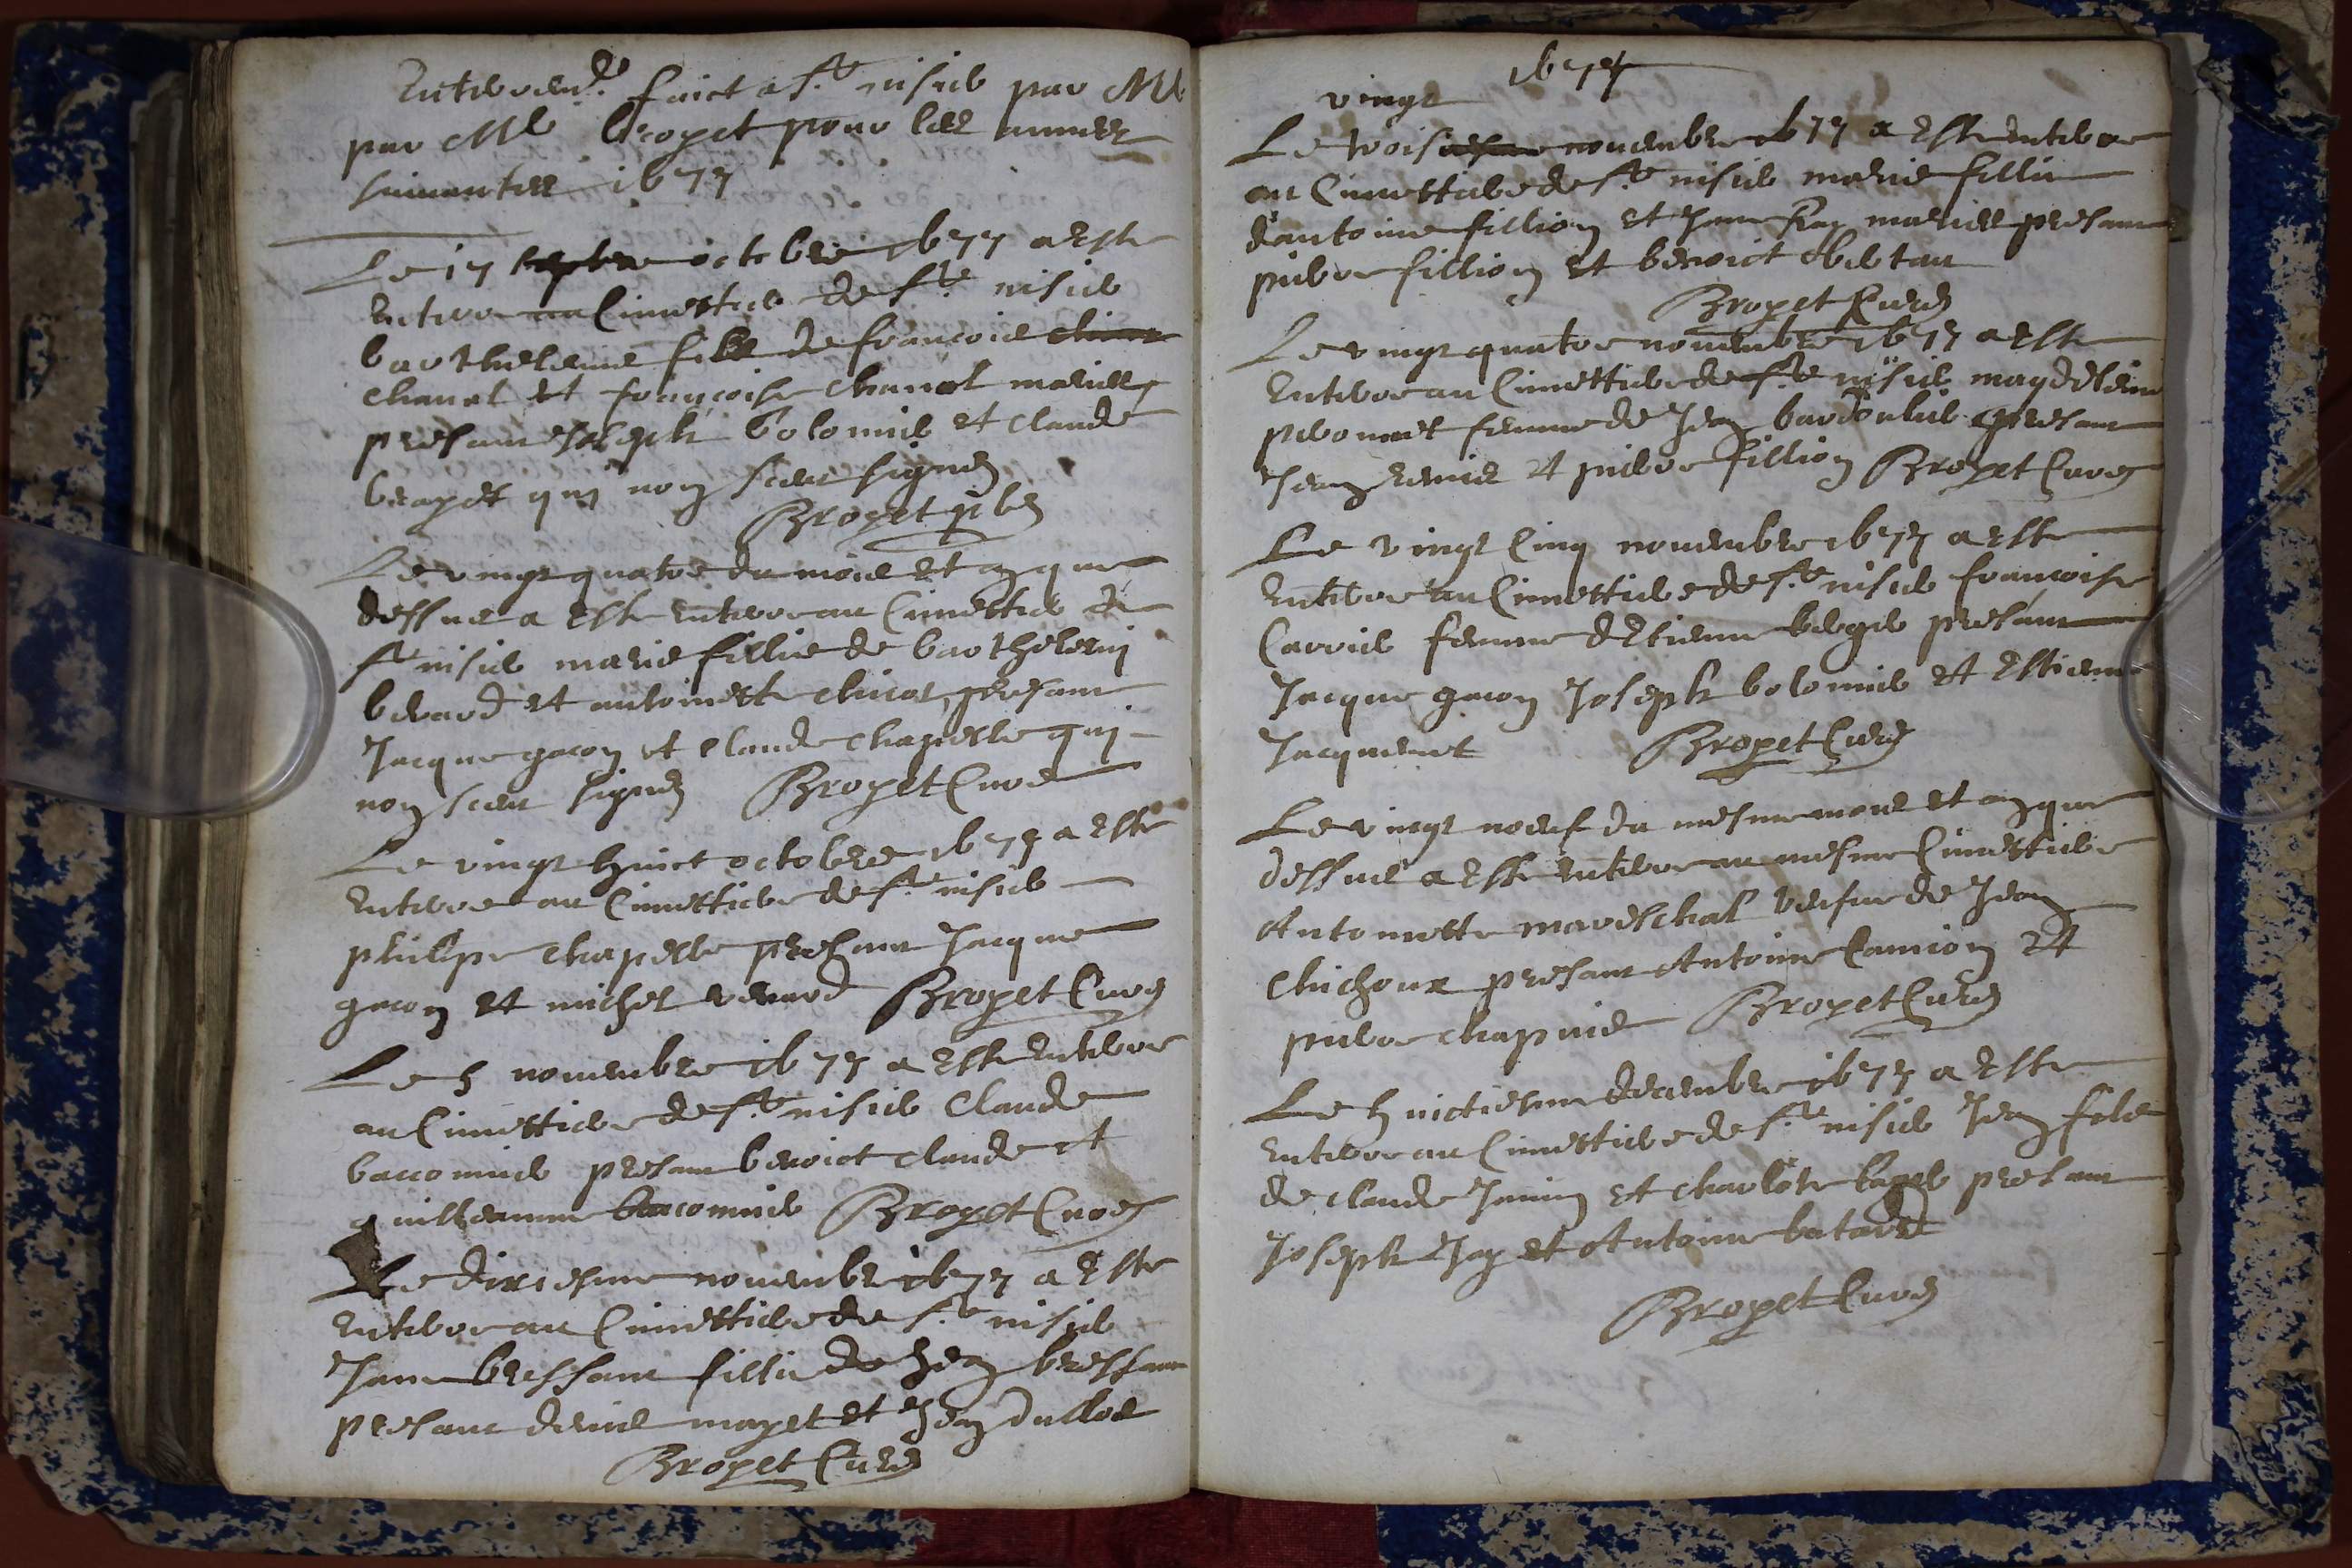 faict a Ste nisie par Me
par Me bropet pour les annees
suivantes 1677
Le 17 septbre octobre 1677 a este
enterre au Cimettiere de Ste nisie
barthelemie fille de francoie
chanal et francoise chanal maries
presant Joseph bolomie et claude
qui non sceu signer
Bropet pbr
Le vingt quatre du mois et an que
dessus a este enterre au Cimettie de
Ste nisie marie fillie de barthelemi
berard et antoinette presant
Jacque gacon et claude chapelle qui
non sceu signer Bropet Cure
Le vingt huict octobre 1677 a este
enterre au Cimettiere de Ste nisie
philipe chapelle presant Jacque
gacon et michel Bropet Cure
Le 5 novembre 1677 a este enterre
au Cimettiere de Ste nisie Claude
baccomie presant benoict claude et
guilheaume baccomie Bropet Cure
Le dixiesme novembre 1677 a este
enterre au Cimettiere de Ste nisie
Jane bressant fillie de Jean bressant
presant denis mayet et Jean
Bropet Cure
1677
vingt
Le troisiesme novembre 1677 a este enterre
au Cimettiere de Ste nisie marie fillie
d'antoine fillion et Jane maries presant
pierre fillion et benoict
Bropet Cure
Le vingt quatre novembre 1677 a este
enterre au Cimettiere de Ste nisie magdeleine
femme de Jean presant
Jean et pierre fillion Bropet Cure
Le vingt cinq novembre 1677 a este
enterre au Cimettiere de Ste nisie francoise
Carrie femme d'Etienne presant
Jacque gacon Joseph bolomie et Estienne
Jacquemet Bropet Cure
Le vingt noeuf du mesme mois et an que
dessus a este enterre au mesme Cimettiere
Antoinette mareschal vefve de Jean
presant Antoine Camion et
pierre chapuis Bropet Cure
Le huictiesme decembre 1677 a este
enterre au Cimettiere de Ste nisie Jean fils
de claude Janin et charlote presant
Joseph Jay et Antoine batard
Bropet Cure